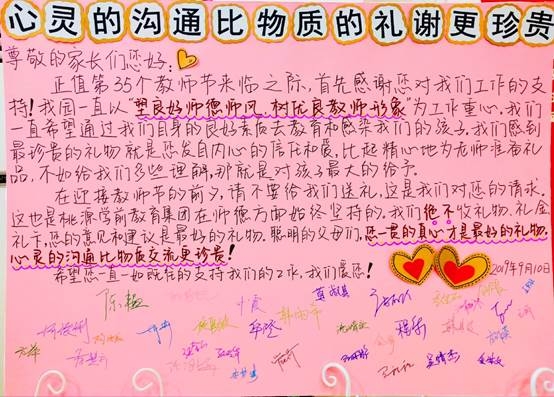 心灵的沟通比物质的礼谢更珍贵
尊敬的家长们您好:
正值第35个教师节来临之际,首先感谢您对我们工作的支
持!我园一直以"塑良好师德师风、树优良教师形象"为工作重心,我们
一直希望通过我们自身的良好素质去教育和感染我们的孩子,我们感到
最珍贵的礼物就是您发自内心的信任和爱,比起精心地为老师准备礼
品,不如给我们多些理解,那就是对孩子最大的给予。
在迎接教师节的前夕,请不要给我们送礼,这是我们对您的请求。
这也是桃源学前教育集团在师德方面始终坚持的。我们绝不收礼物、礼金
礼卡,您的意见和建议是最好的礼物。聪明的父母们,您一贯的真心才是最好的礼物,
心灵的沟通比物质交流更珍贵!
希望您一直一如既往的支持我们的工作,我们爱您!
2019年9月10日